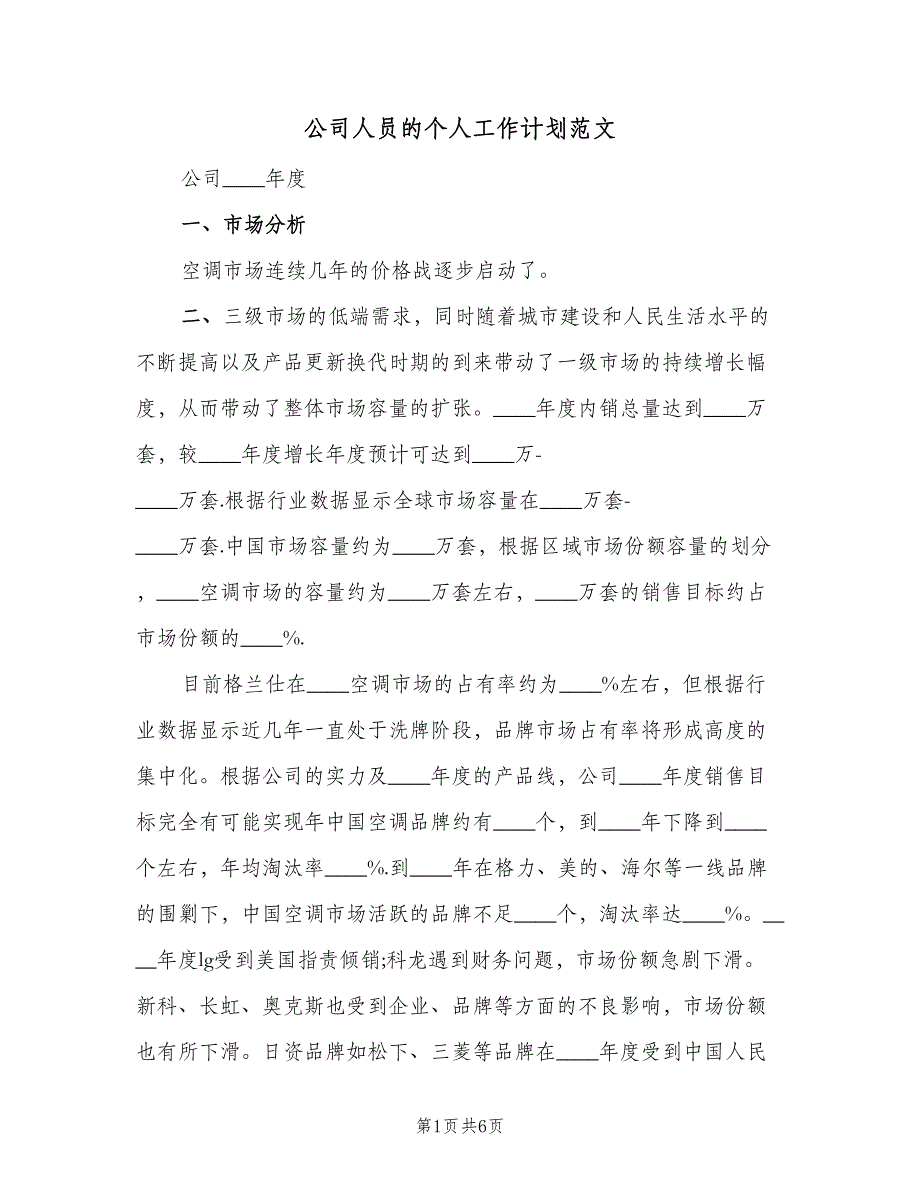 公司人员的个人工作计划范文
公司____年度
一、市场分析
空调市场连续几年的价格战逐步启动了。
二、三级市场的低端需求，同时随着城市建设和人民生活水平的
不断提高以及产品更新换代时期的到来带动了一级市场的持续增长幅
度，从而带动了整体市场容量的扩张。____年度内销总量达到____万
套，较____年度增长年度预计可达到____万-
____万套.根据行业数据显示全球市场容量在____万套-
____万套.中国市场容量约为____万套，根据区域市场份额容量的划分
，____空调市场的容量约为____万套左右，____万套的销售目标约占
市场份额的____%.
目前格兰仕在____空调市场的占有率约为____%左右，但根据行
业数据显示近几年一直处于洗牌阶段，品牌市场占有率将形成高度的
集中化。根据公司的实力及____年度的产品线，公司____年度销售目
标完全有可能实现年中国空调品牌约有____个，到____年下降到____
个左右，年均淘汰率____%.到____年在格力、美的、海尔等一线品牌
的围剿下，中国空调市场活跃的品牌不足____个，淘汰率达____%。__
__年度lg受到美国指责倾销;科龙遇到财务问题，市场份额急剧下滑。
新科、长虹、奥克斯也受到企业、品牌等方面的不良影响，市场份额
也有所下滑。日资品牌如松下、三菱等品牌在____年度受到中国人民
第1页 共6页